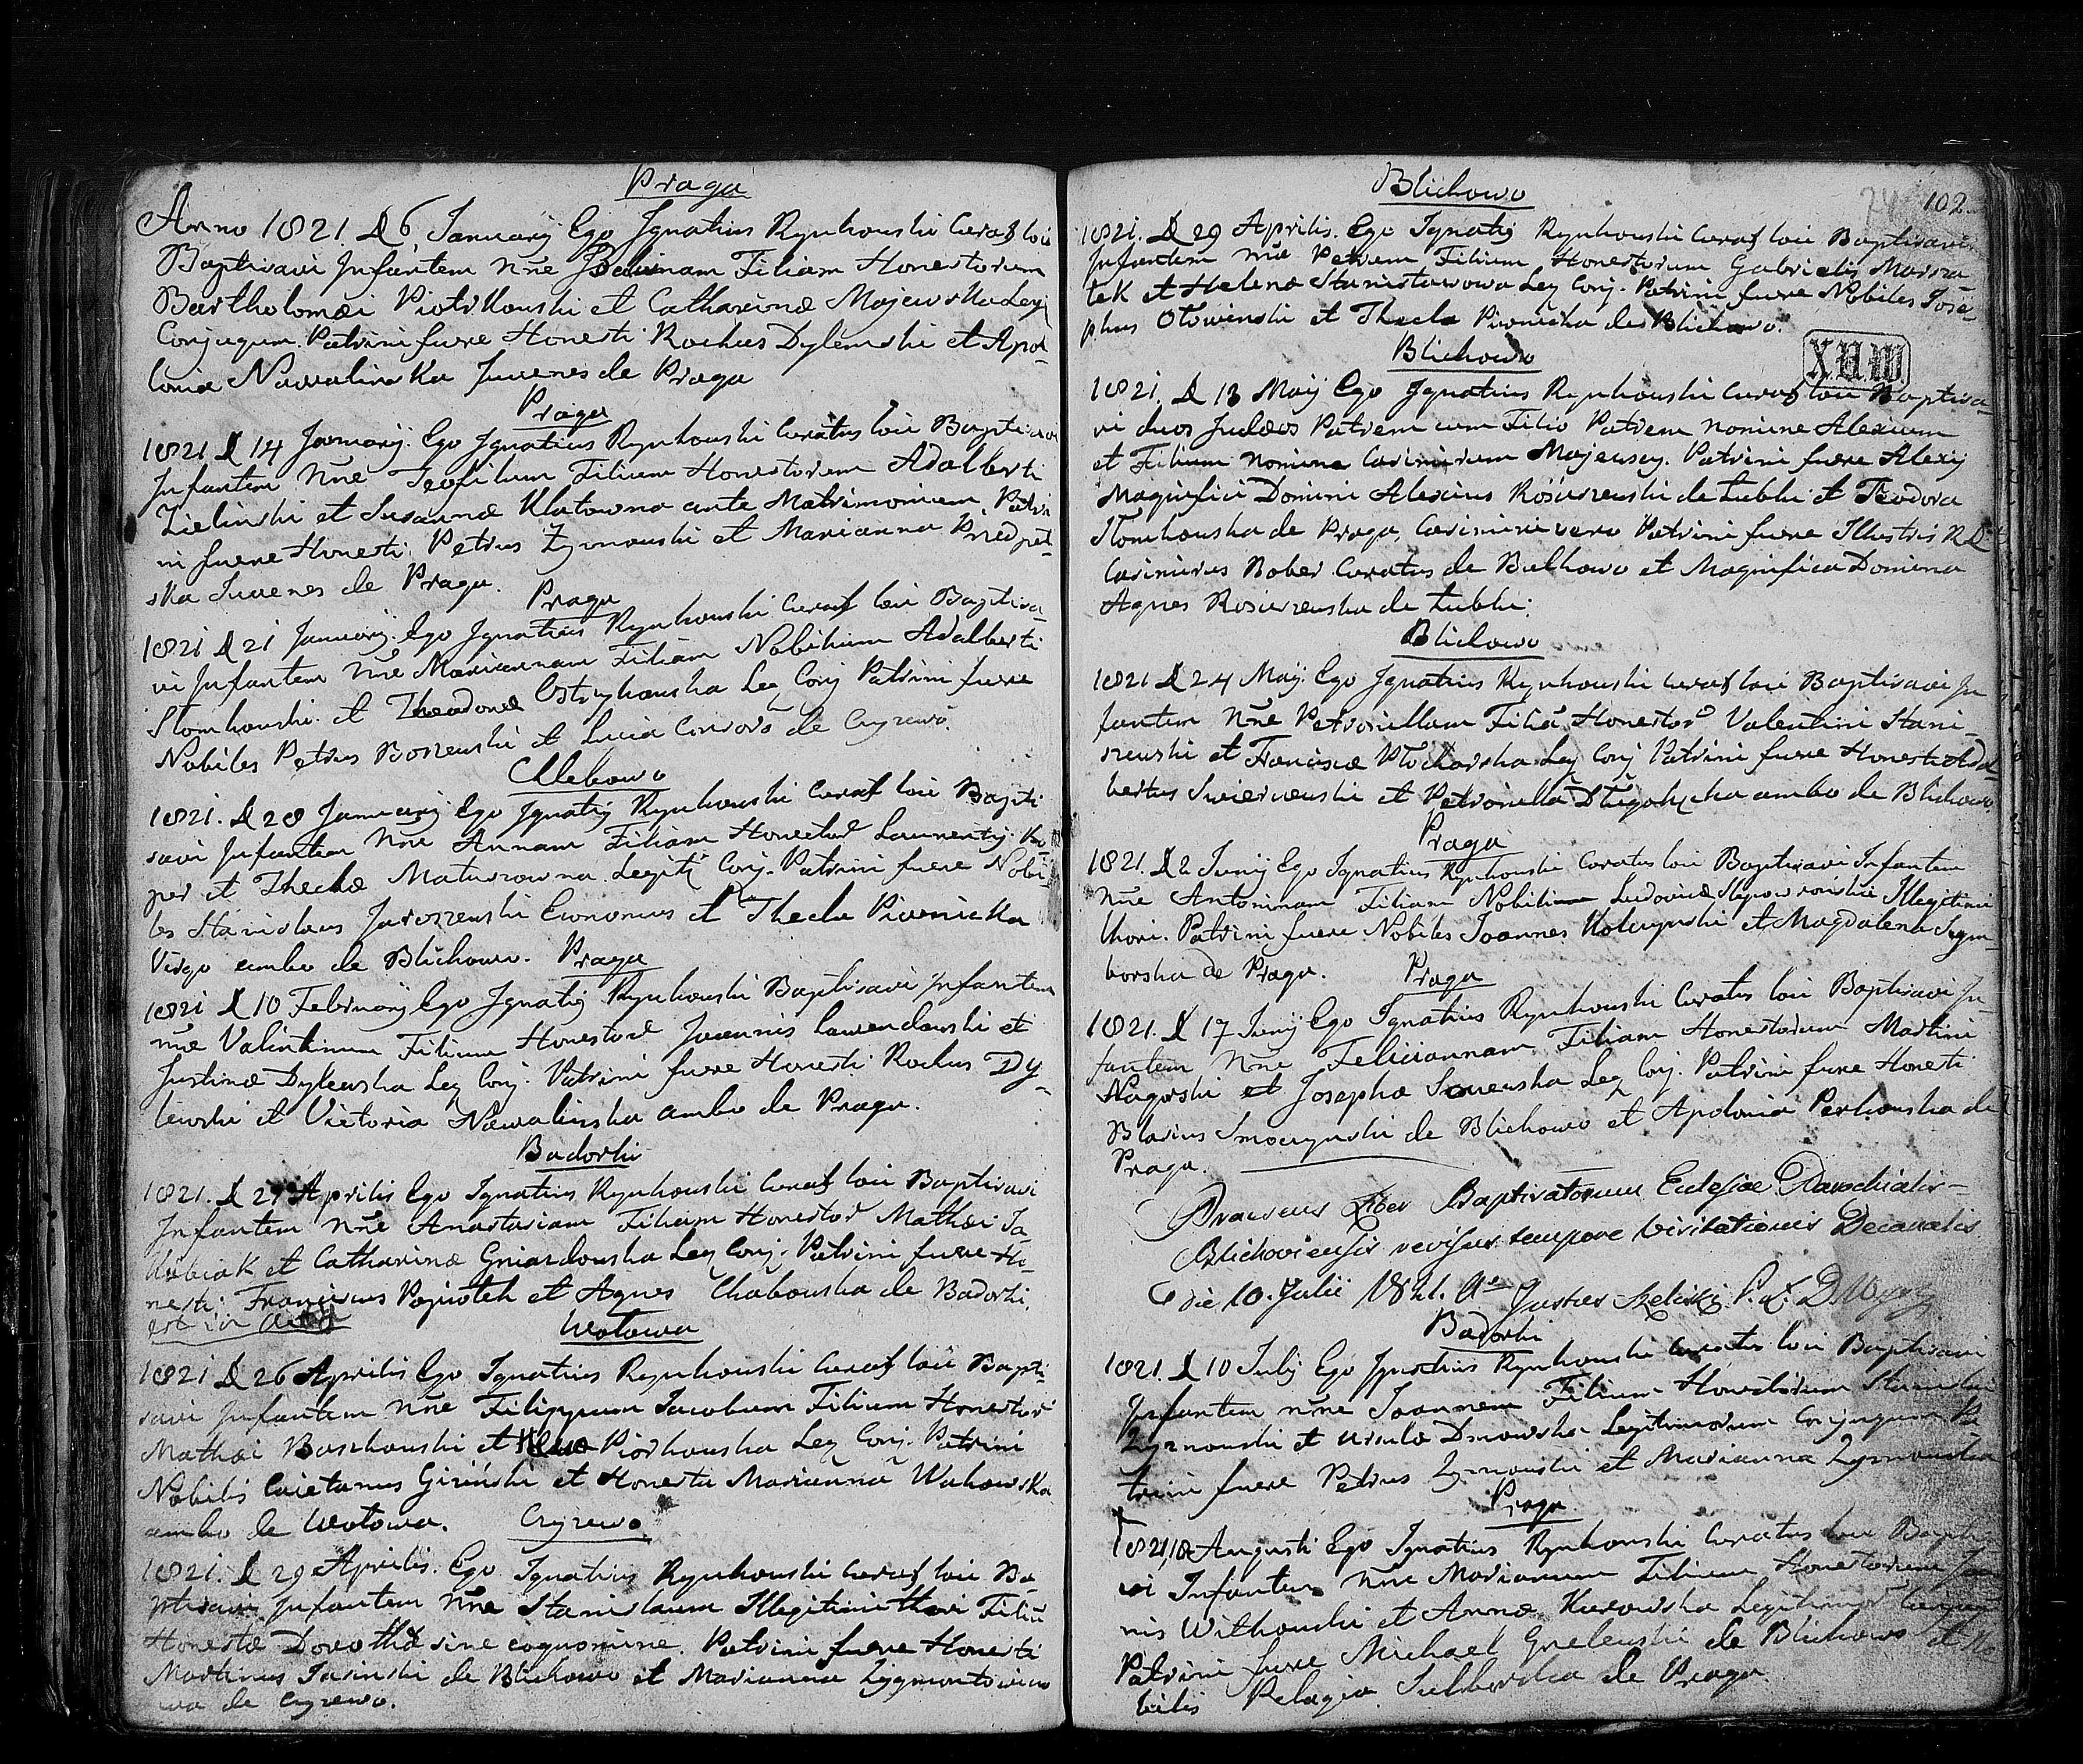 Praga
Anno 1821. D 6 January Ego Ignatius Rynkowski Curat loci
Baptisavi Infantem nne Filiam Honestorum
Bartholomæi Piotrkowski et Catharinæ Majewska Leg
Conjugum. Patrini fuere Honesti Rochus Dylewski et Apol-
lonia Nawalinska Juvenes de Praga
Praga
1821 D 14 January. Ego Ignatius Rynkowski Curatus loci Baptisavi
Infantem Nne Teofilum Filium Honestorum Adalberti
Zielinski et Susannæ Ulatowna ante Matrimonium Patri
ni fuere Honesti Petrus Zymowski et Marianna
ska Juvenes de Praga.
Praga
1821 D 21 January. Ego Ignatius Rynkowski Curat loci Baptisa-
vi Infantem Nne Mariannam Filiam Nobilium Adalberti
Slomkowski et Theodoræ Ostrykowska Leg Conj Patrini fuere
Nobiles Petrus Boszewski et Lucia de Cyzewo.
Chlebowo
1821. D 28 January Ego Ignatig Rynkowski Curat loci Bapti
savi Infantem Nne Annam Filiam Honestor Laurentij
per et Theclæ Matusowna Legitj Conj. Patrini fuere Nobi-
les Stanislaus Jaroszewski Economus et Thecla Piwnicka
Virgo ambo de Blichowo.
Praga
1821 D 10 February Ego Ignatig Rynkowski Baptisavi Infantem
nne Valintinum Filium Honestor Joannis Lawendowski et
Justinæ Dylewska Leg Conj. Patrini fuere Honesti Rochus Dy-
lewski et Victoria Nawalinska ambo de Praga.
Badorki
1821. D 21 Aprilis Ego Ignatius Rynkowski Curat loci Baptisavi
Infantem Nne Anastasiam Filiam Honestor Mathæi Ja-
kubiak et Catharinæ Gniazdowska Leg Conj. Patrini fuere Ho-
nesti Franciscus Pajutek et Agnes Chabowska de Badorki.
est in
Wotowa
1821 D 26 Aprilis Ego Ignatius Rynkowski Curat loci Bapti-
savi Infantem Nne Filippum Jacobum Filium Honestor
Mathæi Baszkowski et Piorkowska Leg Conj. Patrini
Nobilis Caietanus Girinski et Honesta Marianna Wakowska
ambo de Wotowa.
Cyzewo
1821. D 29 Aprilis. Ego Ignatius Rynkowski Curat loci Ba-
ptisavi Infantem Nne Stanislaum Illegitimi thori Filiu
Honestæ Dorothæ sine cognomine. Patrini fuere Honesti
Martinus Jasinski de Blichowo et Marianna Zygmontowiczo
wa de Cyzewo.
Blichowo
74 102
1821. D 29 Aprilis. Ego Ignatig Rynkowski Curat loci Baptisavi
Infantem nne Petrum Filium Honestorum Gabrielis Marsza-
tek et Helenæ Stanisławowa Leg Conj. Patrini fuere Nobiles Jose-
phus Otowinski et Thecla Piwnicka de Blichowo.
Blichowo
X.U.W.
1821. D 13 Maij Ego Ignatius Rynkowski Curat loci Baptisa-
vi duos Judæos Patrem cum Filio Patrem nomine Alexium
et Filium nomine Casimirum Majewscy. Patrini fuere Alexij
Magnifici Domini Alexius Rościszewski de Lubki et Teodora
Słomkowska de Praga, Casimiri vero Patrini fuere Illustris R.D.
Casimirus Bober Curatus de Bulkowo et Magnifica Domina
Agnes Rosciszewska de Lubki.
Blichowo
1821 D 24 Maij. Ego Ignatius Rynkowski Curat loci Baptisavi In
fantem Nne Petronillam Filiā Honestor Valentini Stani-
szewski et Franciscæ Płocharska Leg Conj Patrini fuere Honesti Adal-
bertus Swierczewski et Petronilla Długołęcka ambo de Blichowo.
Praga
1821. D 2 Junij Ego Ignatius Rynkowski Curatus loci Baptisavi Infantem
Nne Antoninam Filiam Nobilium Ludovicæ Illegitimi
thori. Patrini fuere Nobiles Joannes Kołczynski et Magdalena Sym-
borska de Praga.
Praga
1821. D 17 Junij Ego Ignatius Rynkowski Curatus loci Baptisavi In-
fantem Nne Feliciannam Filiam Honestorum Martini
Nagorski et Josephæ Leg Conj. Patrini fuere Honesti
Blasius Smoczynski de Blichowo et Apolonia Perkowska de
Praga.
Praesens Liber Baptisatorum Ecclesiae Parochialis
Blichoviensis revisus tempore Visitationis Decanalis
die 10. Julii 1821. Justus
Badorki
1821. D 10 Julij Ego Ignatius Rynkowski Curatus loci Baptisavi
Infantem nne Joannem Filium Honestorum Stanislai
Zyznowski et Ursula Dmowska Legitimorum Conjugum Pa
trini fuere Petrus Zymowski et Marianna Zymowska
Praga
1821. 18 Augusti Ego Ignatius Rynkowski Curatus loci Baptisa
vi Infantem Nne Mariannam Filiam Honestorum Joan
nis Witkowski et Annæ Kurowska Legitimor Conjug
Patrini fuere Michael Grelewski de Blichowo et No
bilis Pelagia Sulborska de Praga.